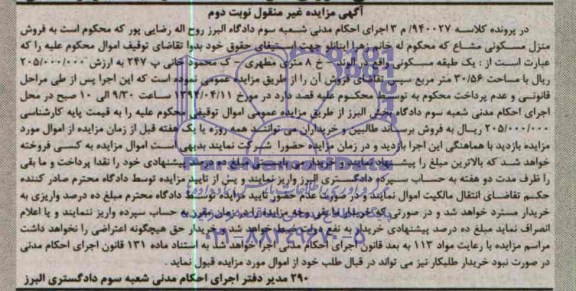 آگهی مزایده غیر منقول نوبت دوم
در پرونده کلاسه ۹۴۰۰۲۷/ م ۳ اجرای احکام مدنی شعبه سوم دادگاه البرز روح اله رضایی پور که محکوم است به فروش
منزل مسکونی مشاع که محکوم له خانم زهرا اینانلو جهت استیفای حقوق خود بدوا تقاضای توقیف اموال محکوم علیه را که
عبارت است از : یک طبقه مسکونی واقع در الوند – خ ۸ متری مطهری – ک محمود خانی پ ۲۴۷ به ارزش ۲۰۵/۰۰۰/۰۰۰
ریال با مساحت ۳۰/۵۶ متر مربع سپس تقاضای فروش آن را از طریق مزایده عمومی نموده است که این اجرا پس از طی مراحل
قانونی و عدم پرداخت محکوم به توسط محکوم علیه قصد دارد در مورخ ۱۳۹۴/۰۴/۱۱ ساعت ۹/۳۰ الی ۱۰ صبح در محل
اجرای احکام مدنی شعبه سوم دادگاه بخش البرز از طریق مزایده عمومی اموال توقیفی محکوم علیه را به قیمت پایه کارشناسی
۲۰۵/۰۰۰/۰۰۰ ریال به فروش برساند طالبین و خریداران می توانند همه روزه یا یک هفته قبل از زمان مزایده از اموال مورد
مزایده بازدید با هماهنگی این اجرا بازدید و در زمان مزایده حضورا شرکت نمایند بدیهی است اموال مزایده به کسی فروخته
خواهد شد که بالاترین مبلغ را پیشنهاد نمایند خریدار مبلغ ده درصد پیشنهادی خود را نقدا پرداخت و ما بقی
را ظرف مدت دو هفته به حساب سپرده دادگستری البرز واریز نمایند و پس از تایید مزایده توسط دادگاه محترم صادر کننده
حکم تقاضای انتقال مالکیت اموال نمایند و در صورت عدم تایید مزایده توسط دادگاه محترم مبلغ ده درصد واریزی به
خریدار مسترد خواهد شد و در صورتی که خریدار ما بقی وجه مزایده را در زمان مقرر به حساب سپرده واریز ننمایند و یا اعلام
انصراف نماید مبلغ ده درصد پیشنهادی خریدار به نفع دولت ضبط خواهد شد و خریدار حق هیچگونه اعتراضی را نخواهد داشت
مراسم مزایده با رعایت مواد ۱۱۳ به بعد قانون اجرای احکام مدنی اجرا خواهد شد به استناد ماده ۱۳۱ قانون اجرای احکام مدنی
در صورت نبود خریدار طلبکار نیز می تواند در قبال طلب خود از اموال مورد مزایده قبول نماید .
۲۹۰ مدیر دفتر اجرای احکام مدنی شعبه سوم دادگستری البرز